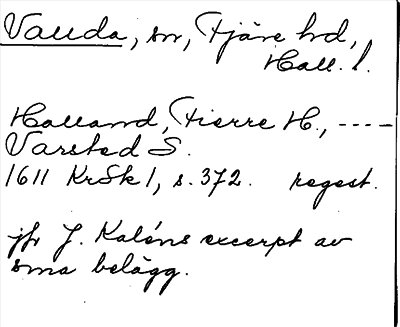 Valida, sn, Fjäre hd,
Hall. l.
Halland, Fierre H., ----
Varsted S.
1611 KrSk 1, s. 372. regest.
jfr J. Kaléns excerpt av
sma belägg.